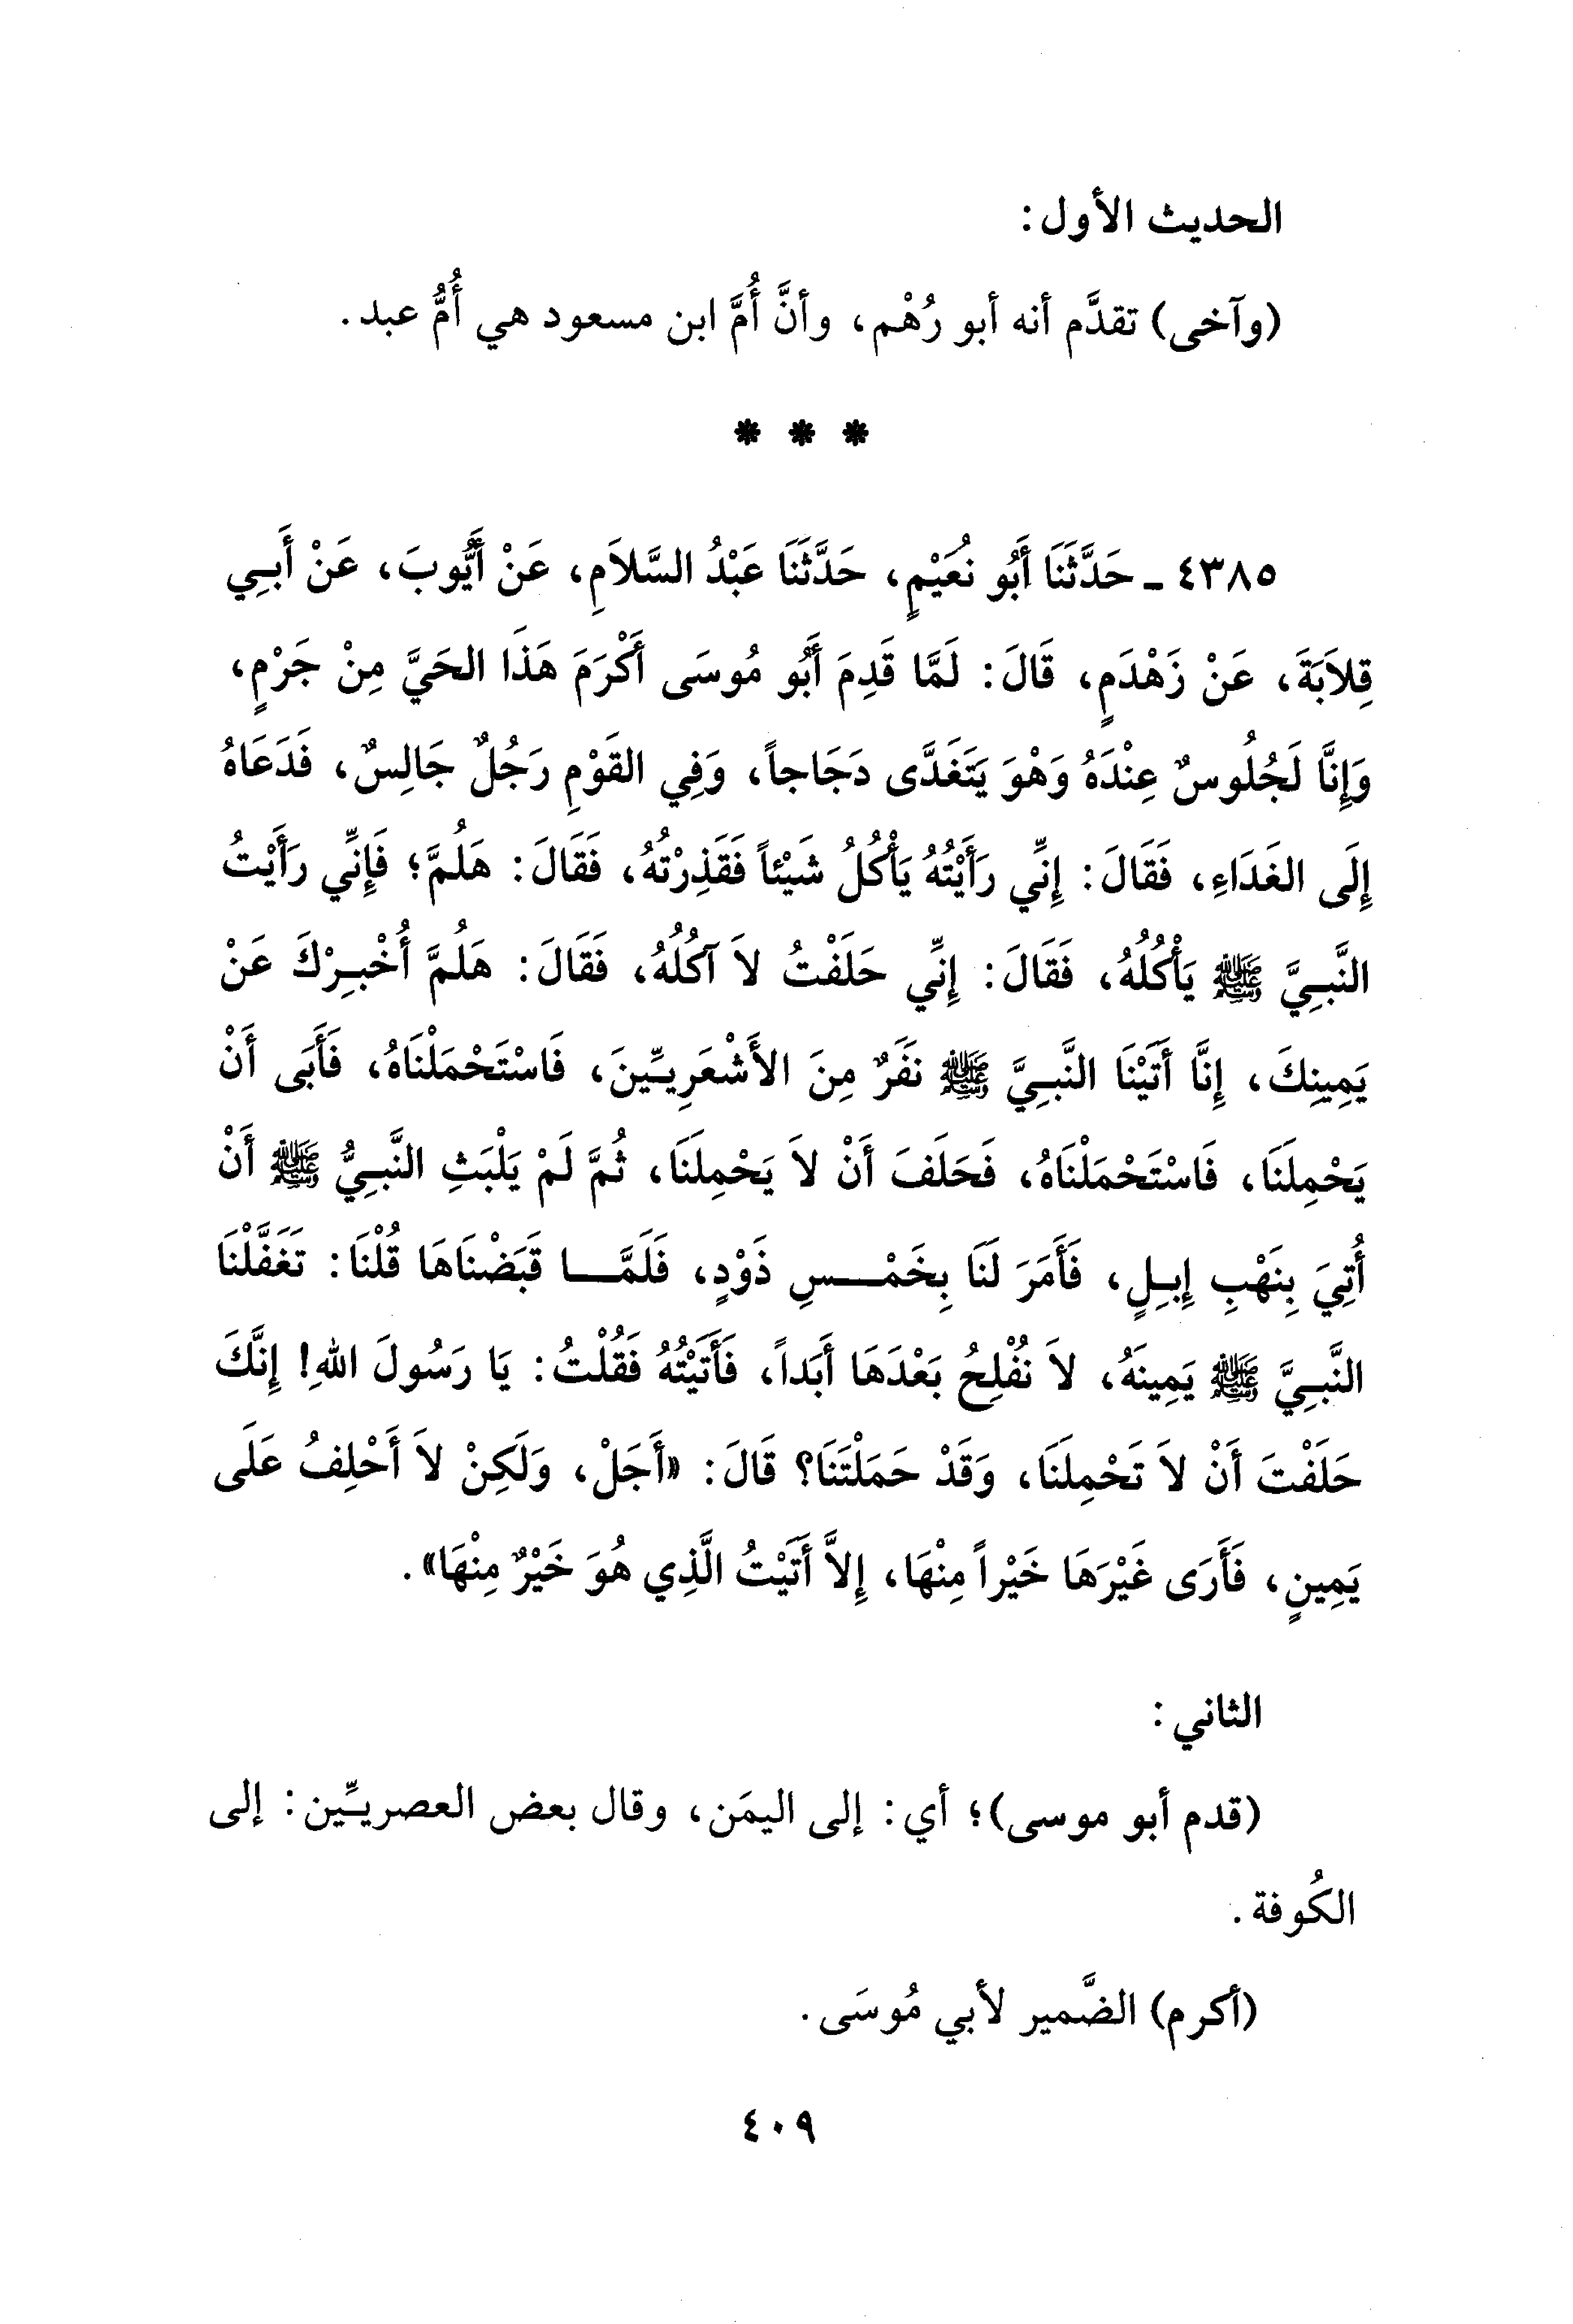 الحديث الأول:
(وآخى) تقدَّم أنه أبو رُهْم، وأنَّ أُمَّ ابن مسعود هي أُمُّ عبد.
* * *
٤٣٨٥ ـ حَدَّثَنَا أَبُو نُعَيْمٍ، حَدَّثَنَا عَبْدُ السَّلاَمِ، عَنْ أَيُّوبَ، عَنْ أَبِي
قِلاَبَةَ، عَنْ زَهْدَمٍ، قَالَ: لَمَّا قَدِمَ أَبُو مُوسَى أَكْرَمَ هَذَا الحَيَّ مِنْ جَرْمٍ،
وَإِنَّا لَجُلُوسٌ عِنْدَهُ وَهْوَ يَتَغَدَّى دَجَاجاً، وَفِي القَوْمِ رَجُلٌ جَالِسٌ، فَدَعَاهُ
إِلَى الغَدَاءِ، فَقَالَ: إِنِّي رَأَيْتُهُ يَأْكُلُ شَيْئاً فَقَذِرْتُهُ، فَقَالَ: هَلُمَّ؛ فَإِنِّي رَأَيْتُ
النَّبِيَّ ﷺ يَأْكُلُهُ، فَقَالَ: إِنِّي حَلَفْتُ لاَ آكُلُهُ، فَقَالَ: هَلُمَّ أُخْبِرْكَ عَنْ
يَمِينِكَ، إِنَّا أَتَيْنَا النَّبِيَّ ﷺ نَفَرٌ مِنَ الأَشْعَرِيِّينَ، فَاسْتَحْمَلْنَاهُ، فَأَبَى أَنْ
يَحْمِلَنَا، فَاسْتَحْمَلْنَاهُ، فَحَلَفَ أَنْ لاَ يَحْمِلَنَا، ثُمَّ لَمْ يَلْبَثِ النَّبِيُّ ﷺ أَنْ
أُتِيَ بِنَهْبِ إِبِلٍ، فَأَمَرَ لَنَا بِخَمْسِ ذَوْدٍ، فَلَمَّا قَبَضْنَاهَا قُلْنَا: تَغَفَّلْنَا
النَّبِيَّ ﷺ يَمِينَهُ، لاَ نُفْلِحُ بَعْدَهَا أَبَداً، فَأَتَيْتُهُ فَقُلْتُ: يَا رَسُولَ اللهِ! إِنَّكَ
حَلَفْتَ أَنْ لاَ تَحْمِلَنَا، وَقَدْ حَمَلْتَنَا؟ قَالَ: «أَجَلْ، وَلَكِنْ لاَ أَحْلِفُ عَلَى
يَمِينٍ، فَأَرَى غَيْرَهَا خَيْراً مِنْهَا، إِلاَّ أَتَيْتُ الَّذِي هُوَ خَيْرٌ مِنْهَا».
الثاني:
(قدم أبو موسى)؛ أي: إلى اليمَن، وقال بعض العصريِّين: إلى
الكُوفة.
(أكرم) الضَّمير لأبي مُوسَى.
٤٠٩